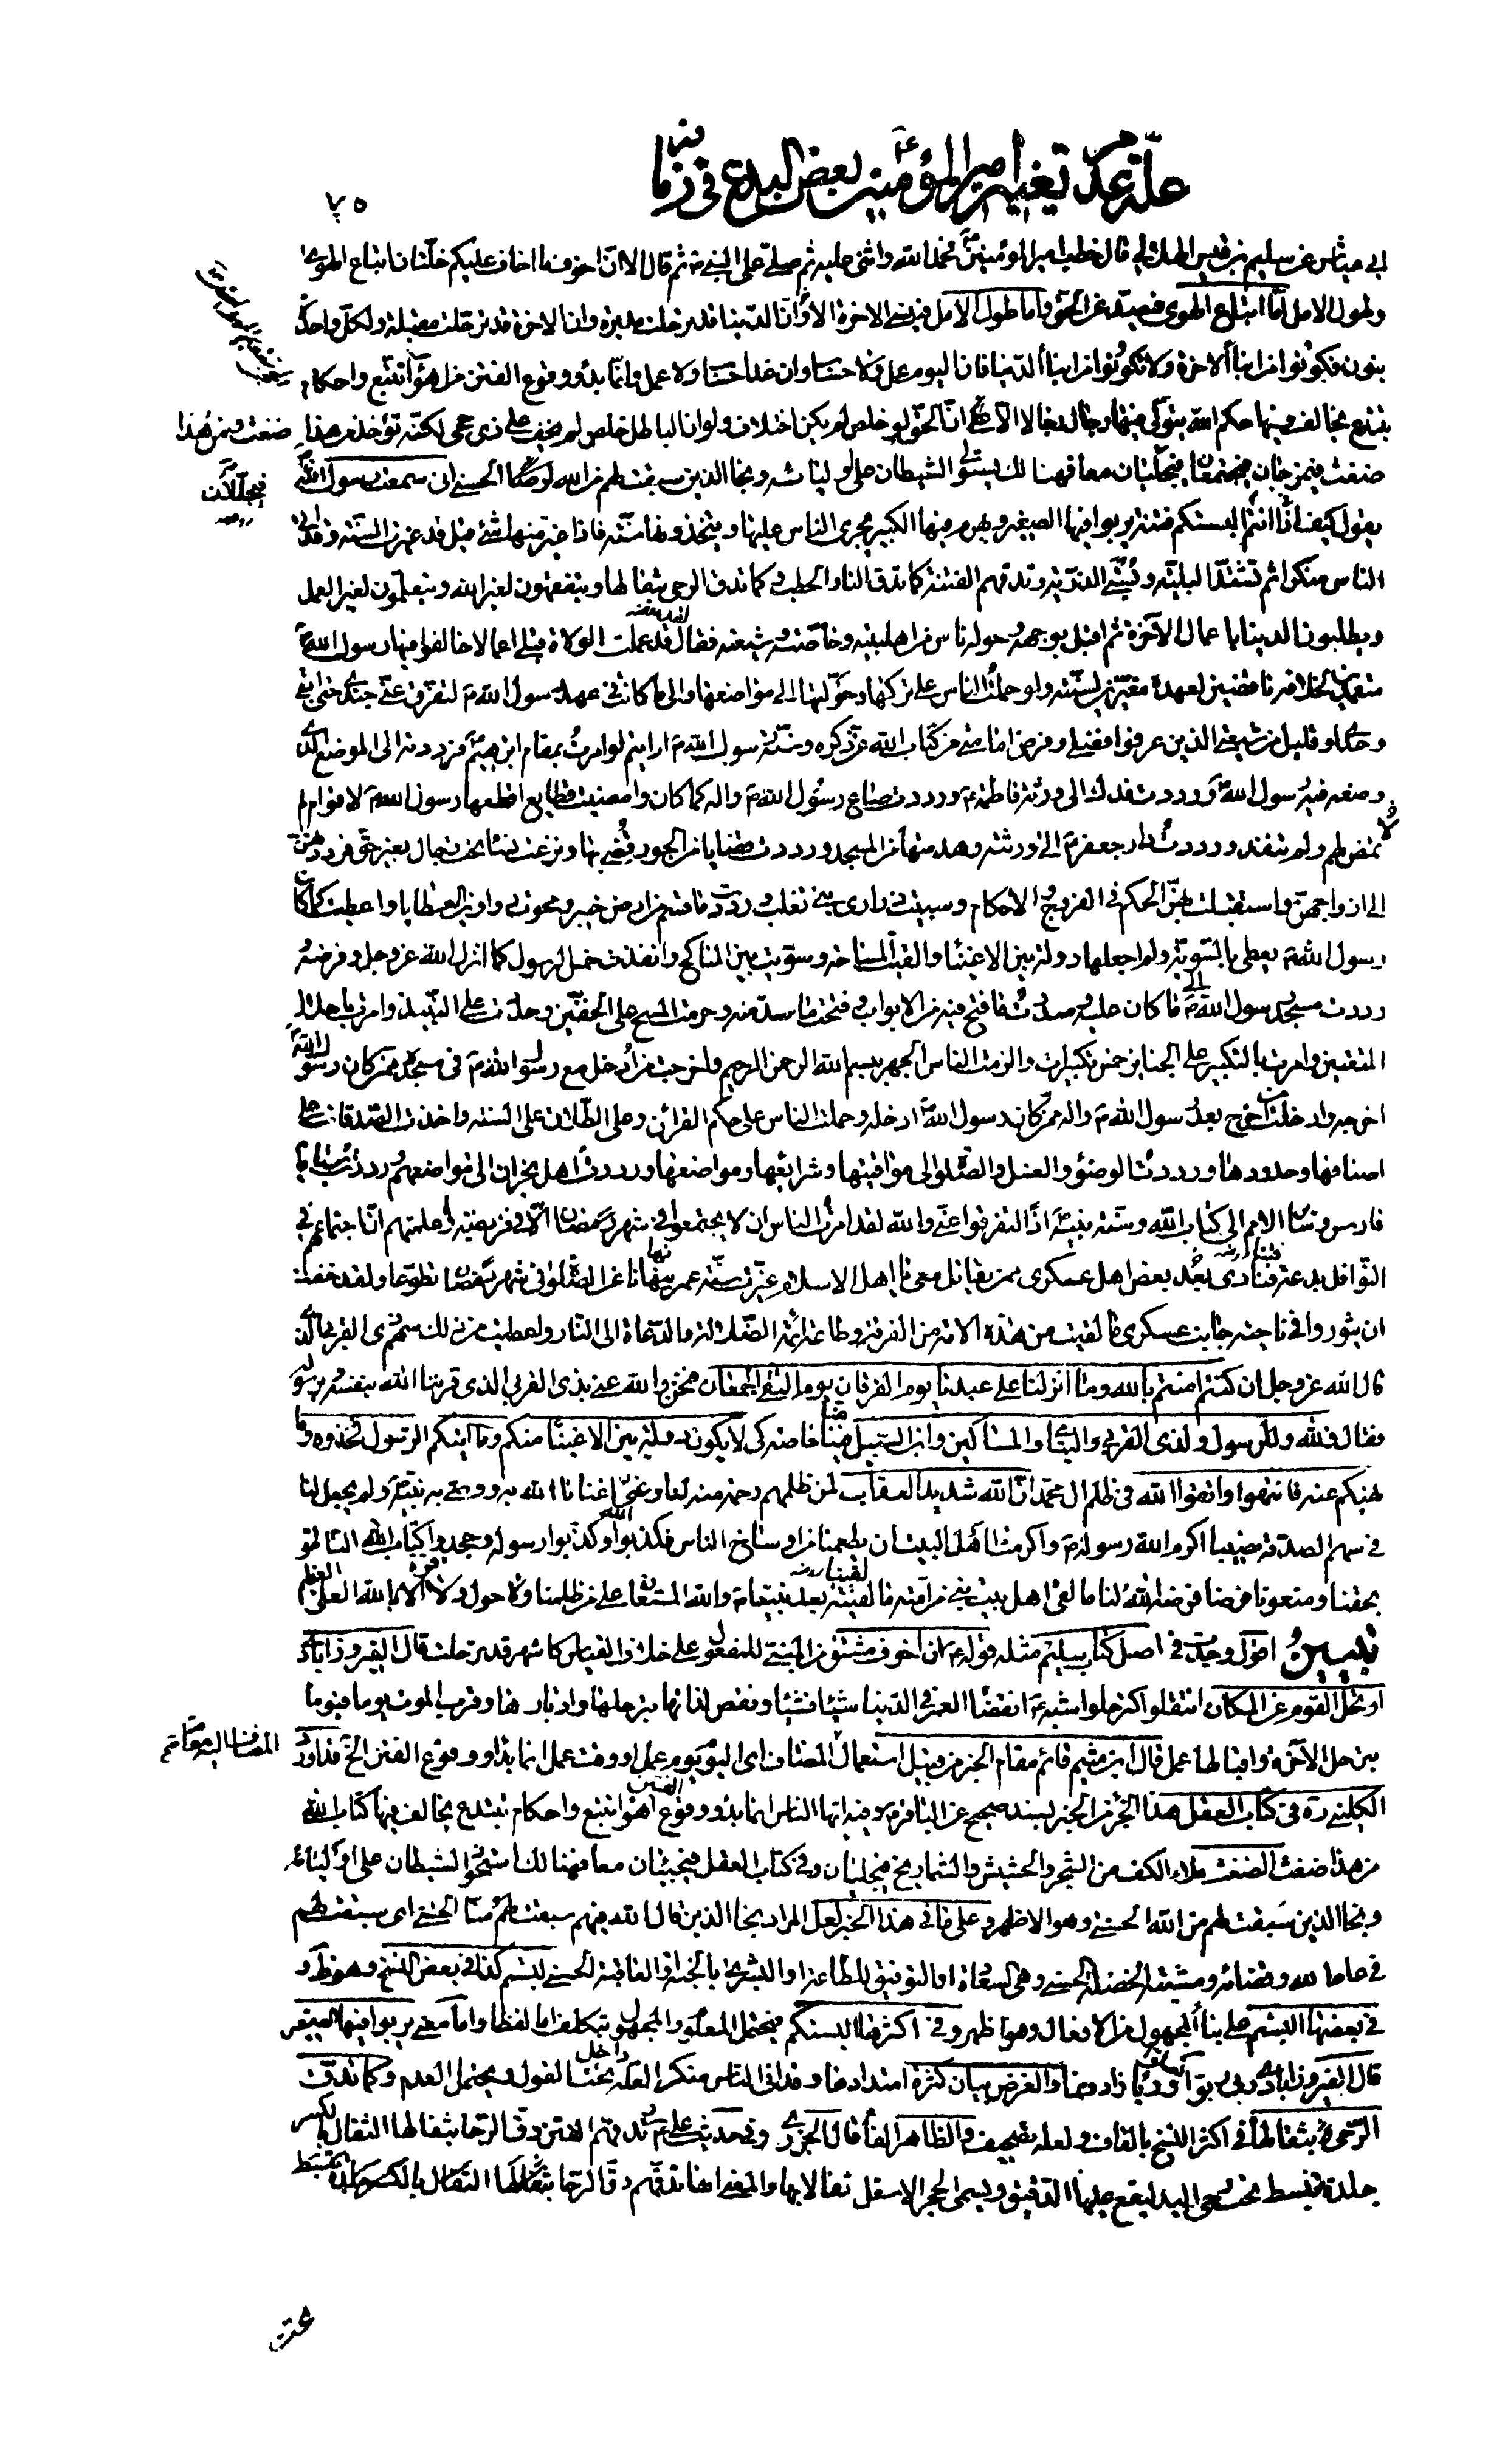 علّة عدم تغيير أمير المؤمنين بعض البدع في زمانه
٧٥
ابي عياش عن سليم بن قيس الهلالي قال خطب امير المؤمنين فحمد الله واثنى عليه ثم صلى على النبي ثم قال الا ان اخوف ما اخاف عليكم خلتان اتباع الهوى
وطول الامل اما اتباع الهوى فيصد عن الحق واما طول الامل فينسي الاخرة الا وان الدنيا قد ترحلت مدبرة وان الاخرة قد ترحلت مقبلة ولكل واحدة
بنون فكونوا من ابناء الاخرة ولا تكونوا من ابناء الدنيا فان اليوم عمل ولا حساب وان غدا حساب ولا عمل وانما بدؤ وقوع الفتن من اهواء تتبع واحكام
تبتدع يخالف فيها حكم الله يتولى فيها رجال رجالا الا ان الحق لو خلص لم يكن اختلاف ولو ان الباطل خلص لم يخف على ذي حجى لكنه يؤخذ من هذا ضغث ومن هذا
ضغث فيمزجان فيجتمعان فيجللان معا فهنالك يستولي الشيطان على اوليائه ونجا الذين سبقت لهم من الله الحسنى اني سمعت رسول الله
فيجللان
يقول كيف انتم اذا البستكم فتنة يربو فيها الصغير ويهرم فيها الكبير يجري الناس عليها ويتخذونها سنة فاذا غير منها شئ قيل قد غيرت السنة وقد اتى
الناس منكرا ثم تشتد البلية وتسبى الذرية وتدقهم الفتنة كما تدق النار الحطب وكما تدق الرحى بثفالها ويتفقهون لغير الله ويتعلمون لغير العمل
ويطلبون الدنيا باعمال الآخرة ثم اقبل بوجهه وحوله ناس من اهل بيته وخاصته وشيعته فقال قد عملت الولاة قبلي اعمالا خالفوا فيها رسول الله
متعمدين لخلافه ناقضين لعهده مغيرين لسنته ولو حملت الناس على تركها وحولتها الى مواضعها والى ما كانت في عهد رسول الله لتفرق عني جندي حتى ابقى
وحدي او قليل من شيعتي الذين عرفوا فضلي وفرض امامتي من كتاب الله عز ذكره وسنة رسول الله ارايتم لو امرت بمقام ابرهيم فرددته الى الموضع الذي
وضعه فيه رسول الله ورددت فدك الى ورثة فاطمة ورددت صاع رسول الله واله كما كان وامضيت قطايع اقطعها رسول الله لاقوام لم
تمض لهم ولم تنفذ ورددت دار جعفر الى ورثته وهدمتها من المسجد ورددت قضايا من الجور قضي بها ونزعت نساء تحت رجال بغير حق فرددتهن
الى ازواجهن واستقبلت بهن الحكم في الفروج والاحكام وسبيت ذراري بني تغلب ورددت ما قسم من ارض خيبر ومحوت دواوين العطايا واعطيت كما كان
رسول الله يعطي بالسوية ولم اجعلها دولة بين الاغنياء والقيت المساحة وسويت بين المناكح وانفذت خمس الرسول كما انزل الله عز وجل وفرضه
ورددت مسجد رسول الله الى ما كان عليه وسددت ما فتح فيه من الابواب وفتحت ما سد منه وحرمت المسح على الخفين وحددت على النبيذ وامرت باحلال
المتعتين وامرت بالتكبير على الجنائز خمس تكبيرات والزمت الناس الجهر ببسم الله الرحمن الرحيم واخرجت من ادخل مع رسول الله في مسجده ممن كان رسول الله
اخرجه وادخلت من اخرج بعد رسول الله واله ممن كان رسول الله ادخله وحملت الناس على حكم القرآن وعلى الطلاق على السنة واخذت الصدقات على
اصنافها وحدودها ورددت الوضوء والغسل والصلوة الى مواقيتها وشرايعها ومواضعها ورددت اهل نجران الى مواضعهم ورددت سبايا
فارس وساير الامم الى كتاب الله وسنة نبيه اذا لتفرقوا عني والله لقد امرت الناس ان لا يجتمعوا في شهر رمضان الا في فريضة واعلمتهم ان اجتماعهم في
النوافل بدعة فتنادى بعض اهل عسكري ممن يقاتل معي يا اهل الاسلام غيرت سنة عمر ينهانا عن الصلوة في شهر رمضان تطوعا ولقد خفت
ان يثوروا في ناحية جانب عسكري ما لقيت من هذه الامة من الفرقة وطاعة ائمة الضلالة والدعاة الى النار ولو اعطيت من ذلك سهم ذي القربى الذي
قال الله عز وجل ان كنتم امنتم بالله وما انزلنا على عبدنا يوم الفرقان يوم التقى الجمعان فنحن والله عني بذي القربى الذي قرننا الله بنفسه وبرسوله
فقال فلله وللرسول ولذي القربى واليتامى والمساكين وابن السبيل فينا خاصة كي لا يكون دولة بين الاغنياء منكم وما آتيكم الرسول فخذوه وما
نهيكم عنه فانتهوا واتقوا الله في ظلم ال محمد ان الله شديد العقاب لمن ظلمهم رحمة منه لنا وغنى اغنانا الله به ووصى به نبيه ولم يجعل لنا
في سهم الصدقة نصيبا اكرم الله رسوله واكرمنا اهل البيت ان يطعمنا من اوساخ الناس فكذبوا الله وكذبوا رسوله وجحدوا كتاب الله الناطق
بحقنا ومنعونا فرضا فرضه الله لنا ما لقي اهل بيت نبي من امته ما لقينا بعد نبينا والله المستعان على من ظلمنا ولا حول ولا قوة الا بالله العلي العظيم
تبيين اقول وجدت في اصل كتاب سليم مثله قوله ان اخوف مشتق من المبني للمفعول على خلاف القياس كاشهر قد ترحلت قال الفيروزابادي
ارتحل القوم عن المكان انتقلوا كترحلوا شبه انقضاء العمر في الدنيا شيئا فشيئا ونقص لذاتها بترحلها وادبارها وقرب الموت يوما فيوما
بترحل الآخرة واقبالها عمل قال ابن ميثم قائم مقام الخبر من قبيل استعمال المضاف اي اليوم يوم عمل او وقت عمل انما بدؤ وقوع الفتن الخ قد اورد
المضاف اليه مقام
الكليني ره في كتاب العقل هذا الجزء من الخبر بسند صحيح عن الباقر وفيه ايها الناس انما بدؤ وقوع الفتن اهواء تتبع واحكام تبتدع يخالف فيها كتاب الله
من هذا ضغث الضغث ملاء الكف من الشجر والحشيش والشماريخ فيجللان وفي كتاب العقل فيجيئان معا فهنالك استحوذ الشيطان على اوليائه
ونجا الذين سبقت لهم من الله الحسنى وهو الاظهر وعلى ما في هذا الخبر لعل المراد نجا الذين قال الله فيهم سبقت لهم منا الحسنى اي سبقت لهم
في علم الله وقضائه ومشيته الخصلة الحسنى وهي السعادة او التوفيق للطاعة او البشرى بالجنة او العاقبة الحسنى لبستم كذا في بعض النسخ وهو ظ و
في بعضها البستم على بناء المجهول من الافعال وهو اظهر وفي اكثرها البستكم فيحتمل المعلوم والمجهول بتكلف اما لفظا واما معنى يربو فيها الصغير
قال الفيروزابادي ربى ربوا كعلو وربا زاد ونما والغرض بيان كثرة امتدادها وقد اتى الناس منكرا لعله داخل تحت القول ويحتمل العدم وكما تدق
الرحى بثفالها في اكثر النسخ بالقاف ولعله تصحيف والظاهر الفاء قال الجزري وفي حديث علي تدقهم الفتن دق الرحا بثفالها الثفال بالكسر
جلدة تبسط تحت رحى اليد ليقع عليها الدقيق ويسمى الحجر الاسفل ثفالا بها والمعنى انها تدقهم دق الرحا